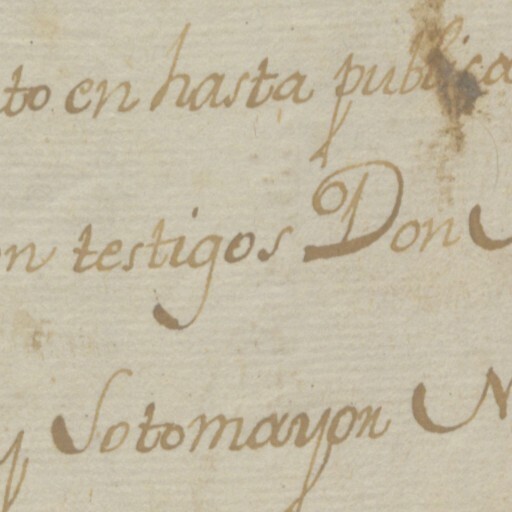 to en hasta publica
on testigos Don
y Sotomayor